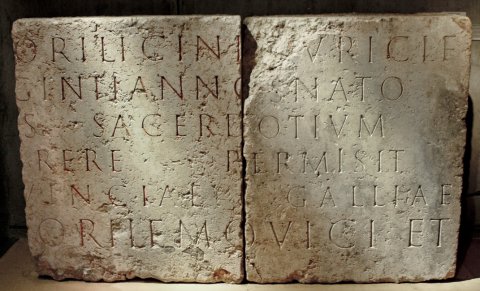 ORILICINI TVRICIF
GINTIANNOS NATO
S SACERDOTIVM
RERE PERMISIT
VINCIAE GALLIAE
ORILEMOVICI ET